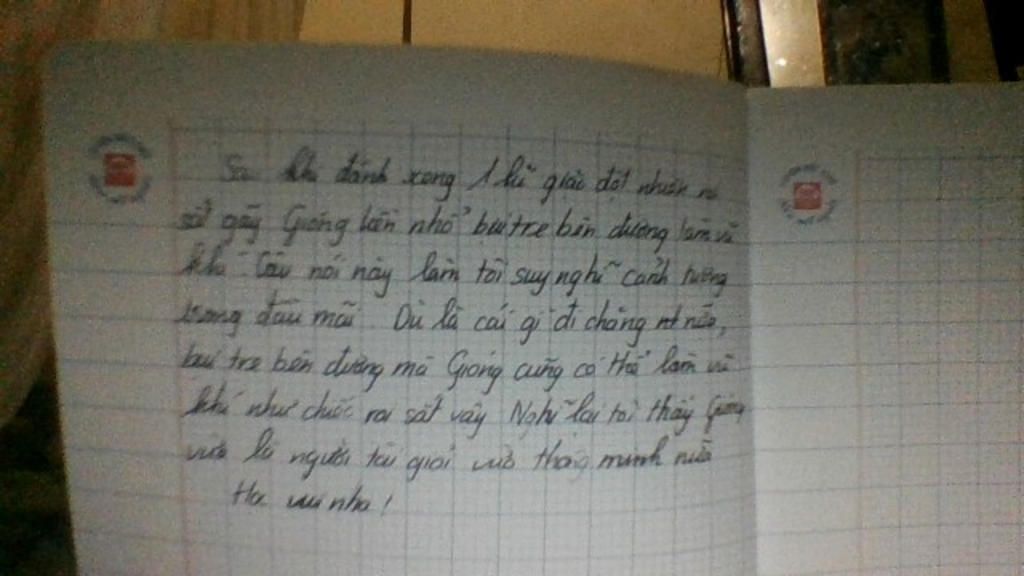 Sa khi đánh xong 1 lũ giặc đột nhiên
sắt gãy Gióng liền nhổ bụi tre bên đường làm vũ
khí Câu nói này làm tôi suy nghĩ cảnh tượng
trong đầu mãi. Dù là cái gì đi chăng nữa,
bụi tre bên đường mà Gióng cũng có thể làm vũ
khí như chiếc roi sắt vậy Nghĩ lại tôi thấy Gióng
vừa là người tài giỏi vừa thông minh nữa
vui nha!